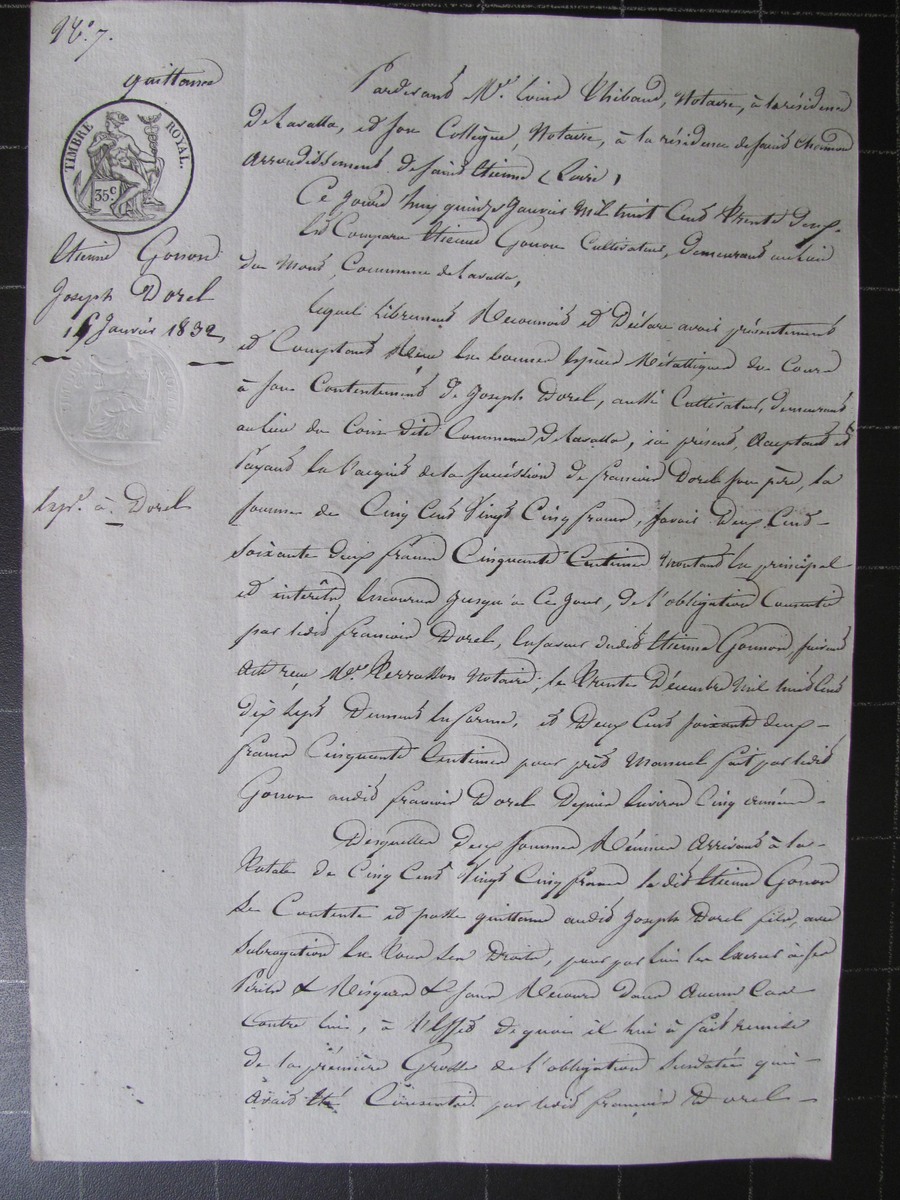 N.° 7.
quittance
TIMBRE ROYAL.
35 c
Etienne Gonon
Joseph Dorel
15 Janvier 1832
Exp.on à Dorel
Pardevant Me. Louis Thibaud, Notaire, à la résidence
de Lavalla, et son Collègue, Notaire, à la résidence de Saint Chamond
arrondissement de Saint Etienne (Loire)
Ce Jourd'huy quinze Janvier mil huit Cent Trente deux
Est Comparu Etienne Gonon Cultivateur, demeurant au Lieu
du Mont, Commune de Lavalla,
Lequel Librement Reconnoit et Déclare avoir présentement
et Comptant Reçu en bonnes Espèces Métalliques du Cours
à son Contentement de Joseph Dorel, aussi Cultivateur, demeurant
au Lieu du Coin dite Commune de Lavalla, ici présent, acceptant et
Payant En l'acquit de la succession de françois Dorel son père, la
somme de Cinq Cent Vingt Cinq francs, savoir Deux Cent
soixante deux francs Cinquante Centimes montant En principal
et intérêts Encourus Jusqu'à Ce Jour, de l'obligation Consentie
par ledit françois Dorel, En faveur dudit Etienne Gonnon suivant
acte reçu Me. Perrasson Notaire, le Trente Décembre mil huit Cent
dix sept Dument En forme, et Deux Cent soixante deux
francs Cinquante Centimes pour prêt Manuel fait par ledit
Gonon audit françois Dorel Depuis Environ Cinq années
Desquelles deux sommes Réunies arrivant à la
Totale de Cinq Cent Vingt Cinq francs ledit Etienne Gonon
Se Contente et passe quittance audit Joseph Dorel fils, avec
Subrogation En Tous Ses Droits, pour par lui Les Exercer à Ses
Périls & Risques & Sans Recours dans Aucun Cas
Contre lui, à l'Effet de quoi il lui à fait remise
de la première Grosse de l'obligation Susdatée qui
avait Eté Consentie par ledit françois Dorel